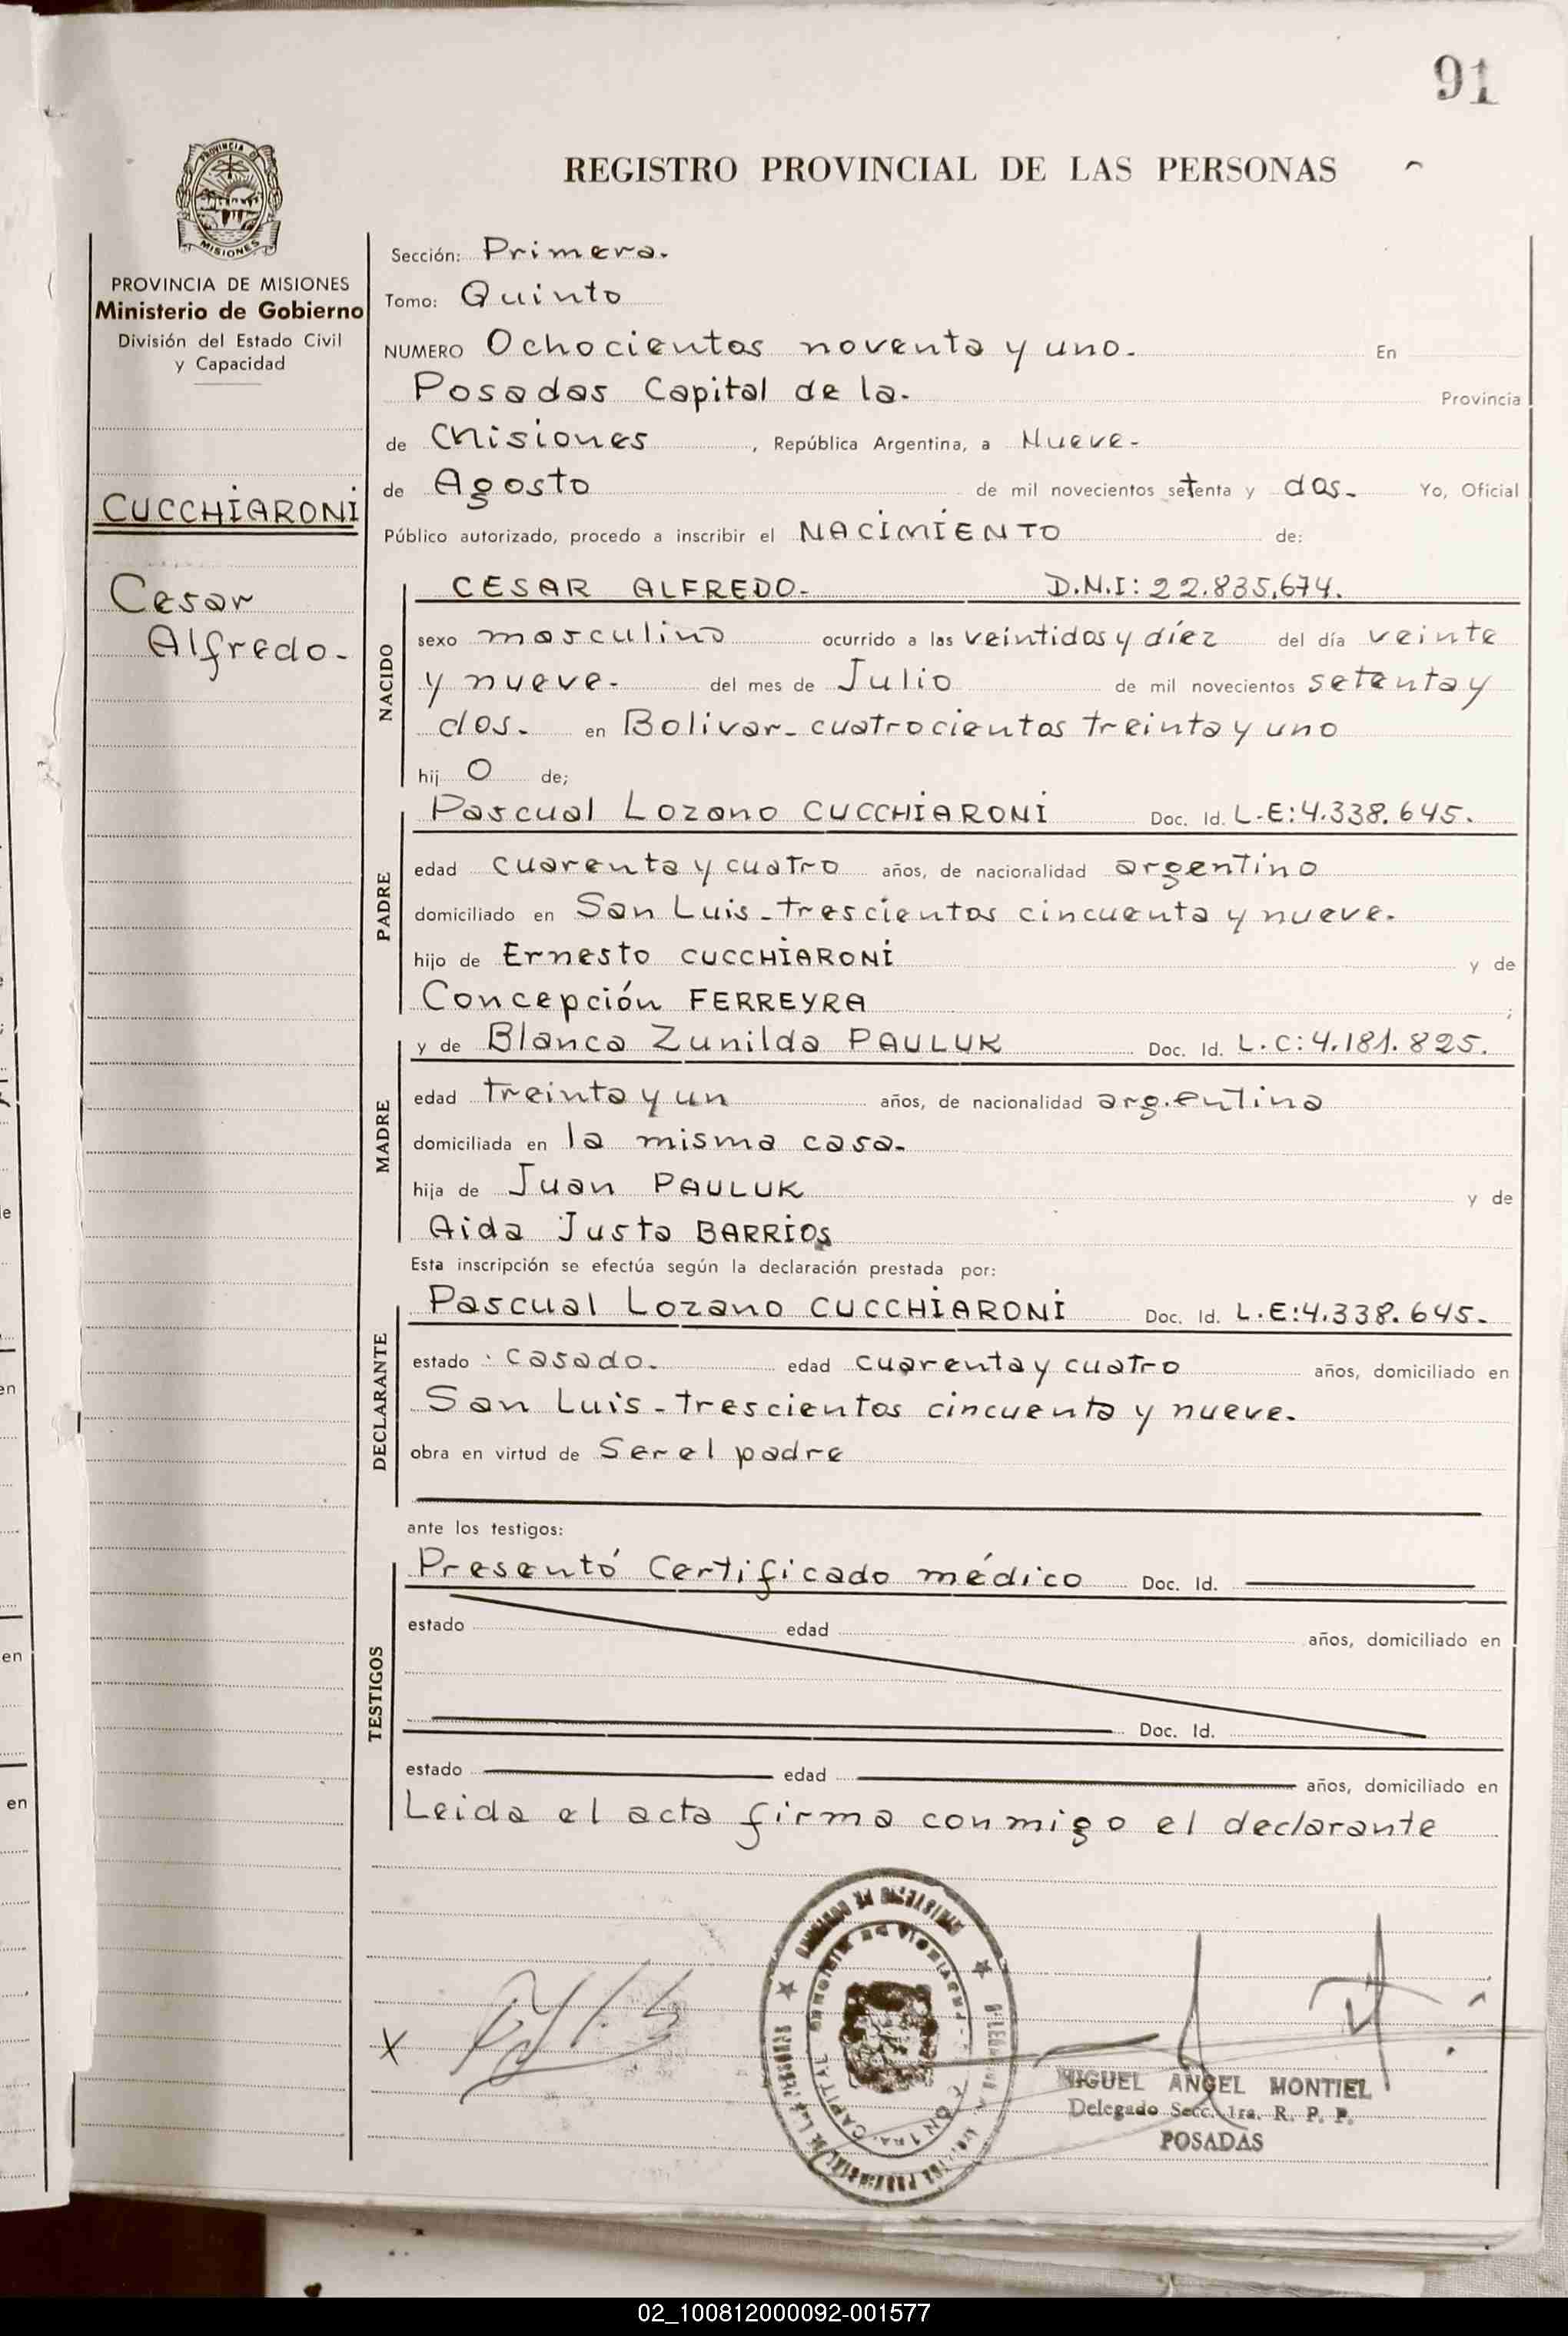 91
REGISTRO PROVINCIAL DE LAS PERSONAS
PROVINCIA DE
MISIONES
PROVINCIA DE MISIONES
Ministerio de Gobierno
División del Estado Civil
y Capacidad
CUCCHIARONI
Cesar
Alfredo.-
Sección: Primera.
Tomo: Quinto
NUMERO Ochocientos noventa y uno.- En
Posadas Capital de la.- Provincia
de Misiones, República Argentina, a Nueve-
de Agosto de mil novecientos setenta y dos.- Yo, Oficial
Público autorizado, procedo a inscribir el NACIMIENTO de:
NACIDO
CESAR ALFREDO.- D.N.I: 22.835.674.
sexo masculino ocurrido a las veintidos y díez del día veinte
y nueve.- del mes de Julio de mil novecientos setenta y
dos.- en Bolivar- cuatrocientos treinta y uno
hij o de;
PADRE
Pascual Lozano CUCCHIARONI Doc. Id. L.E:4.338.645.
edad cuarenta y cuatro años, de nacionalidad argentino
domiciliado en San Luis-trescientos cincuenta y nueve.
hijo de Ernesto CUCCHIARONI y de
Concepción FERREYRA ;
MADRE
y de Blanca Zunilda PAULUK Doc. Id. L.C:4.181.825.
edad treinta y un años, de nacionalidad argentina
domiciliada en la misma casa.
hija de Juan PAULUK y de
Aida Justa BARRIOS
Esta inscripción se efectúa según la declaración prestada por:
DECLARANTE
Pascual Lozano CUCCHIARONI Doc. Id. L.E:4.338.645.-
estado casado.- edad cuarenta y cuatro años, domiciliado en
San Luis-trescientos cincuenta y nueve.
obra en virtud de Ser el padre
ante los testigos:
TESTIGOS
Presentó Certificado médico Doc. Id.
estado edad años, domiciliado en
Doc. Id.
estado edad años, domiciliado en
Leida el acta firma conmigo el declarante
X
MIGUEL ANGEL MONTIEL
Delegado Secc. 1ra. R. P. P.
POSADAS
02_100812000092-001577